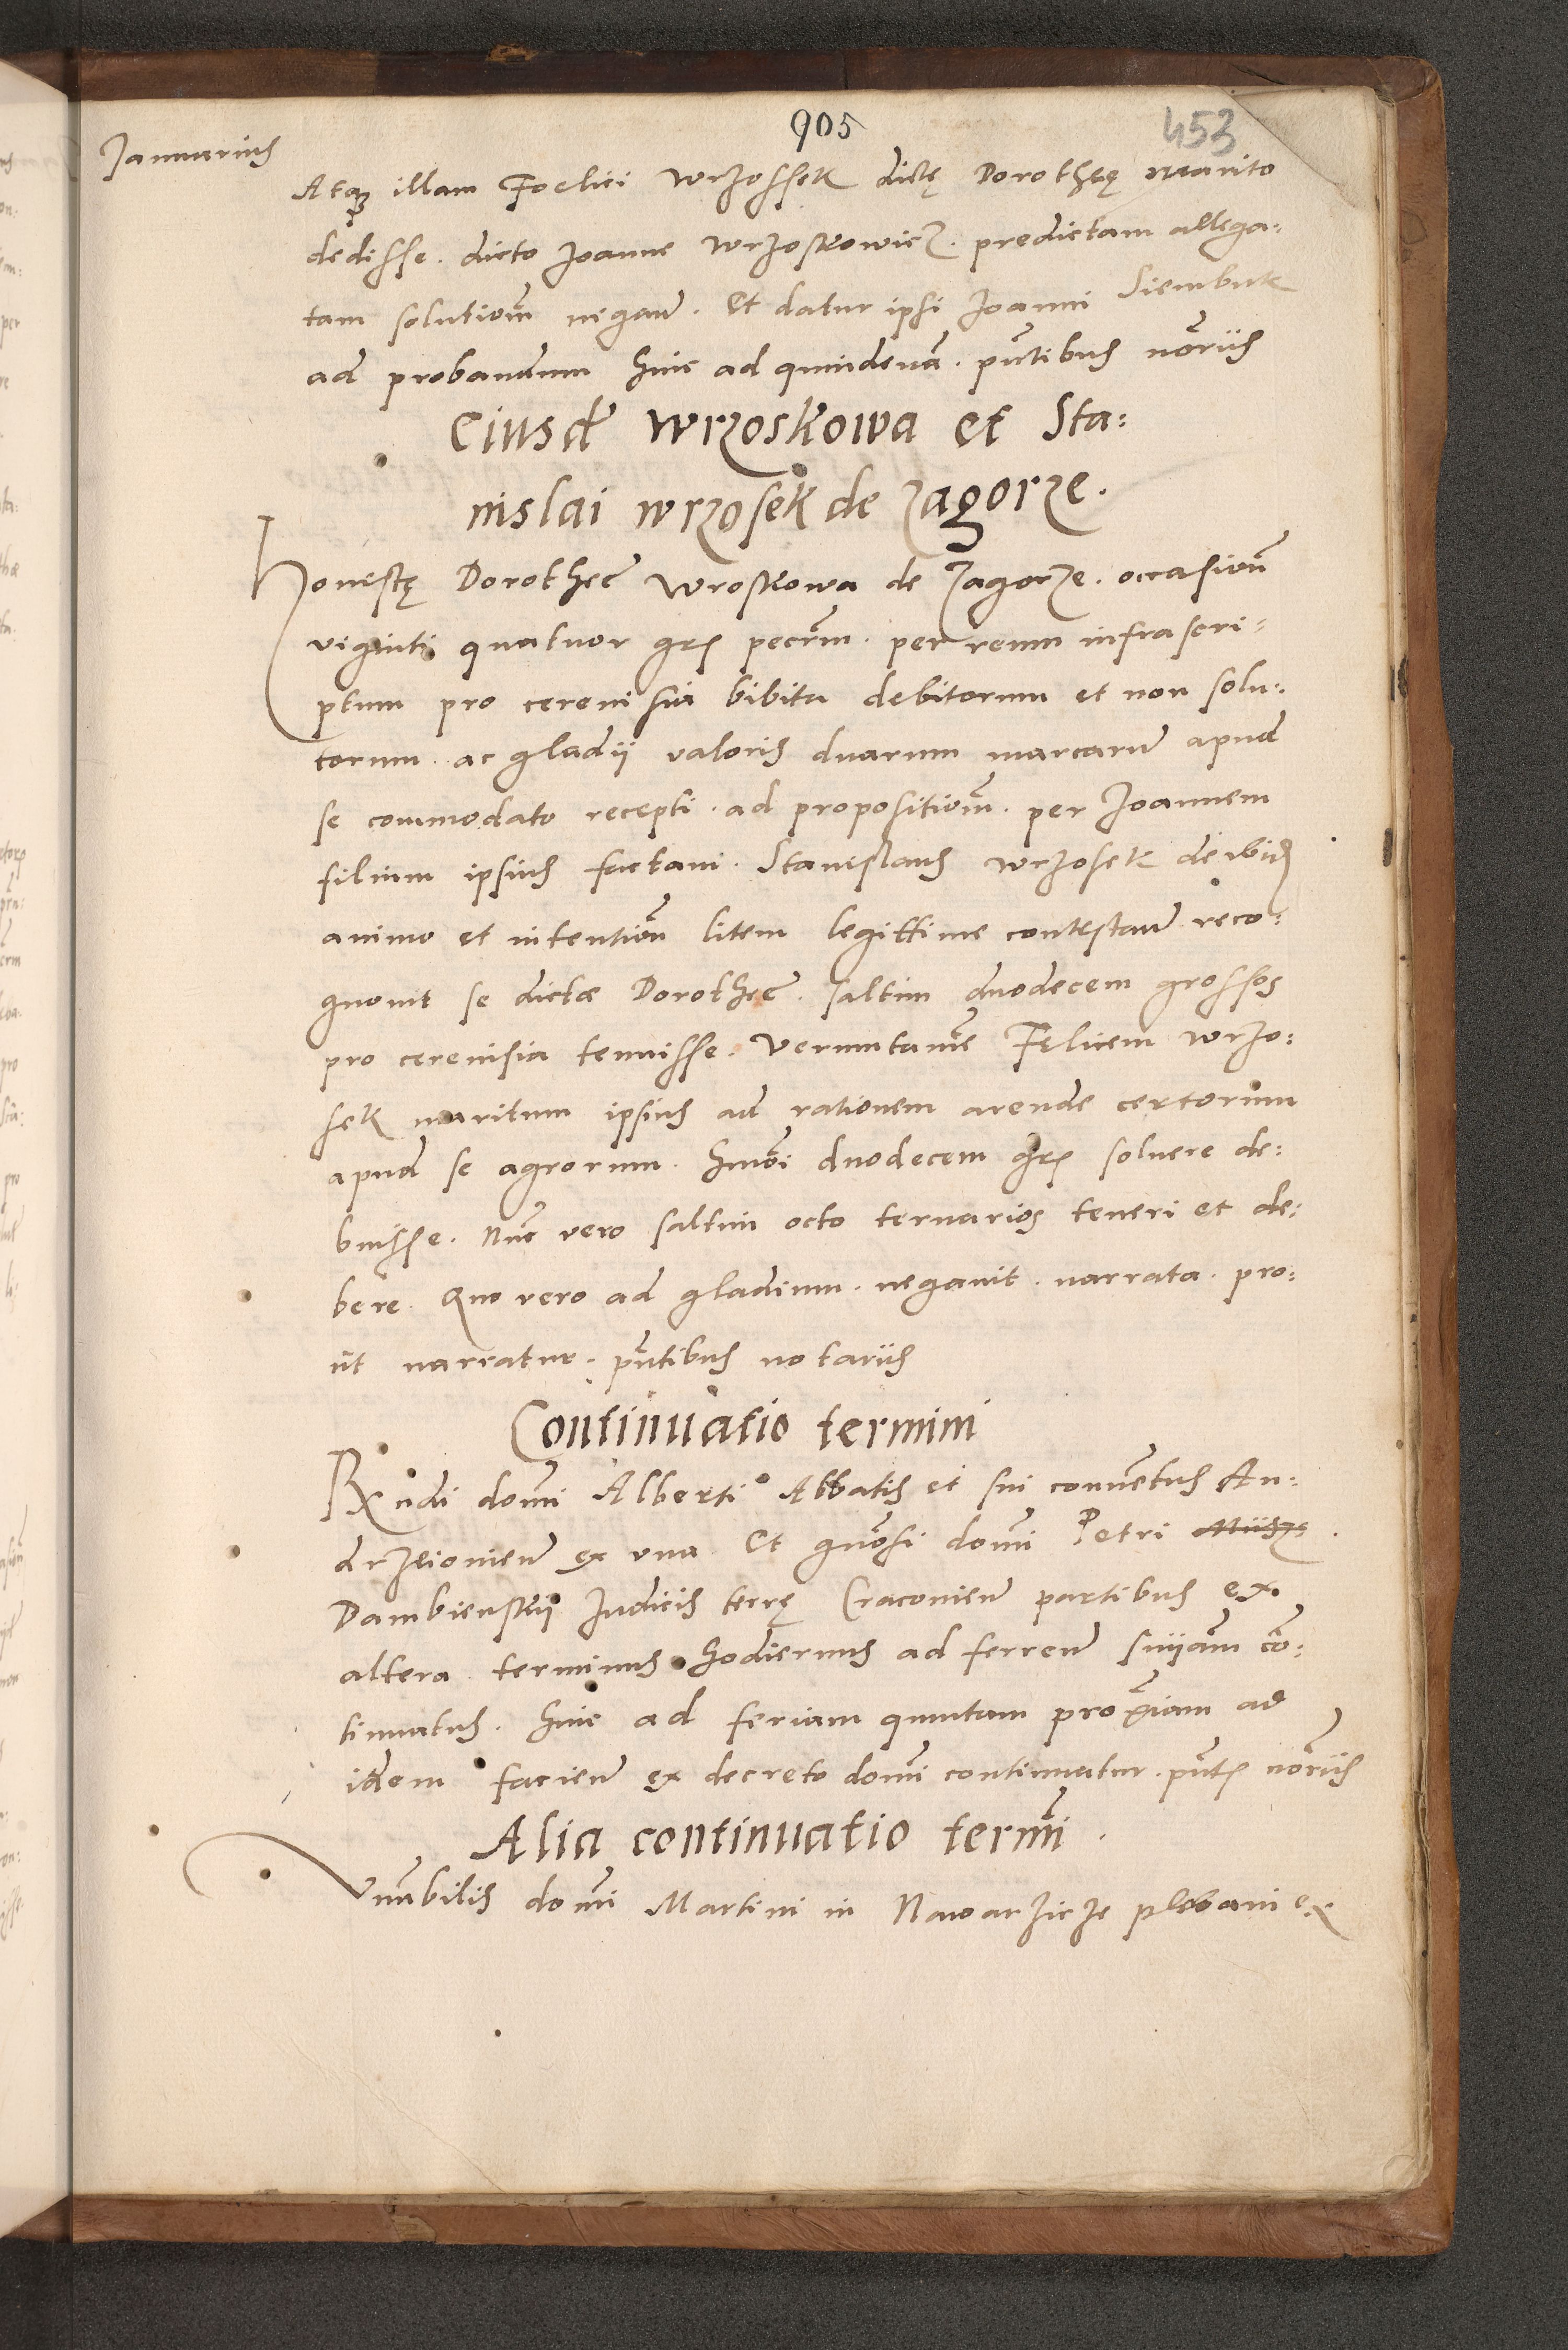 905
453
Januarius
Atqz illam Foelici Wrzossek dictę Dorotheę marito
dedisse. dicto Joanne Wrzoskowicz. predictam allega:
tam solutionē negan̄. Et datur ipsi Joanni Siembuk
ad probandum hinc ad quindenā. pn̄tibus nōriis
Eiusdē Wrzoskowa et Sta:
nislai Wrzosek de Zagorze.
Honestę Dorotheę Wroskowa de Zagorze. occasionē
viginti quatuor grs pecūm. per reum infrascri=
ptum pro cerevisia bibita debitorum et non solu:
torum. ac gladii valoris duarum marcarū apud
se commodato recepti. ad propositionē. per Joannem
filium ipsius factam. Stanislaus Wrzosek de ibidē
animo et intentionē litem legittime contestan̄ reco:
gnovit se dictae Dorotheę. saltim duodecem grossos
pro cerevisia tenuisse. Veruntamē Fęlicem Wrzo:
sek maritum ipsius ad rationem arende certorum
apud se agrorum. hmōi duodecem grs solvere de:
buisse. Nūc vero saltim octo ternarios teneri et de:
bere. Quo vero ad gladium. negavit. narrata. pro:
ut narratur. pn̄tibus notariis
Continuatio termini
Rx ndi domī Alberti Abbatis et sui conventus An:
drzeiovien̄ ex una. Et gnōsi domī Petri
Dambienskij Judicis terrę Cracovien̄ partibus ex
altera. terminus hodiernus ad ferren̄ sn̄iam cō:
tinuatus. hinc ad feriam quintam proximam ad
idem facien̄ ex decreto domī continuatur. pn̄ts nōriis
Alia continuatio termī.
Venn̄bilis domī Martini in Nawarzicze plebani ex